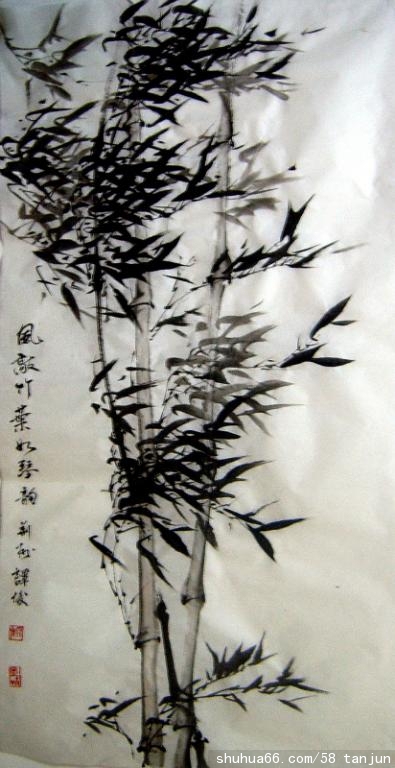 風敲竹葉如琴韻 荆州 譚俊
shuhua66.com/58 tanjun